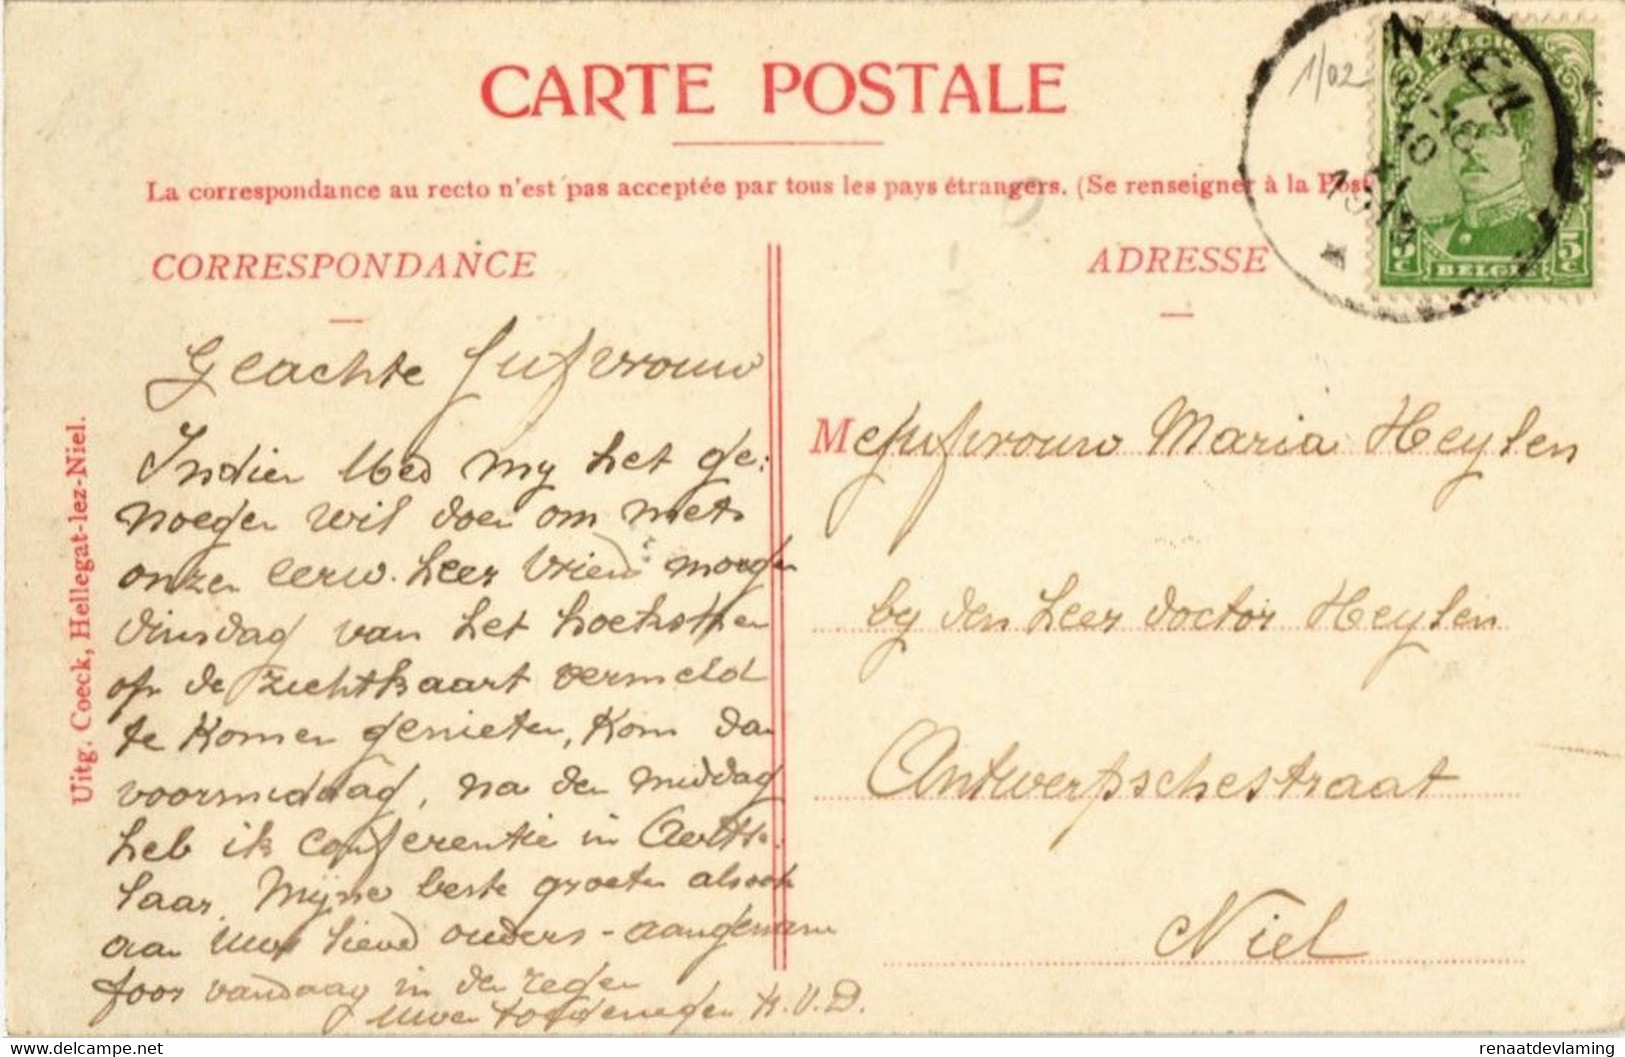 CARTE POSTALE
La correspondance au recto n'est pas acceptée par tous les pays étrangers. (Se renseigner à la Post
CORRESPONDANCE
ADRESSE
1/02
NIEL
BELGIQUE
5 c
5 c
BELGIE
Uitg. Coeck, Hellegat-lez-Niel.
Geachte Jufvrouw
Indien Ued my het ge:
noegen wil doen om met
onzen eerw. heer Vriend morgen
dinsdag van het
op de zichtkaart vermeld
te komen genieten, Kom dan
voormiddag, na den middag
heb ik conferentie in Aerts:
laar. Mijne beste groeten alsook
aan Uwe lieve ouders - aangenaam
foor vandaag in den regen
Uwen toegenegen H.V.D.
Mejufvrouw Maria Heylen
by den heer doctor Heylen
Antwerpschestraat
Niel
delcampe.net
renaatdevlaming